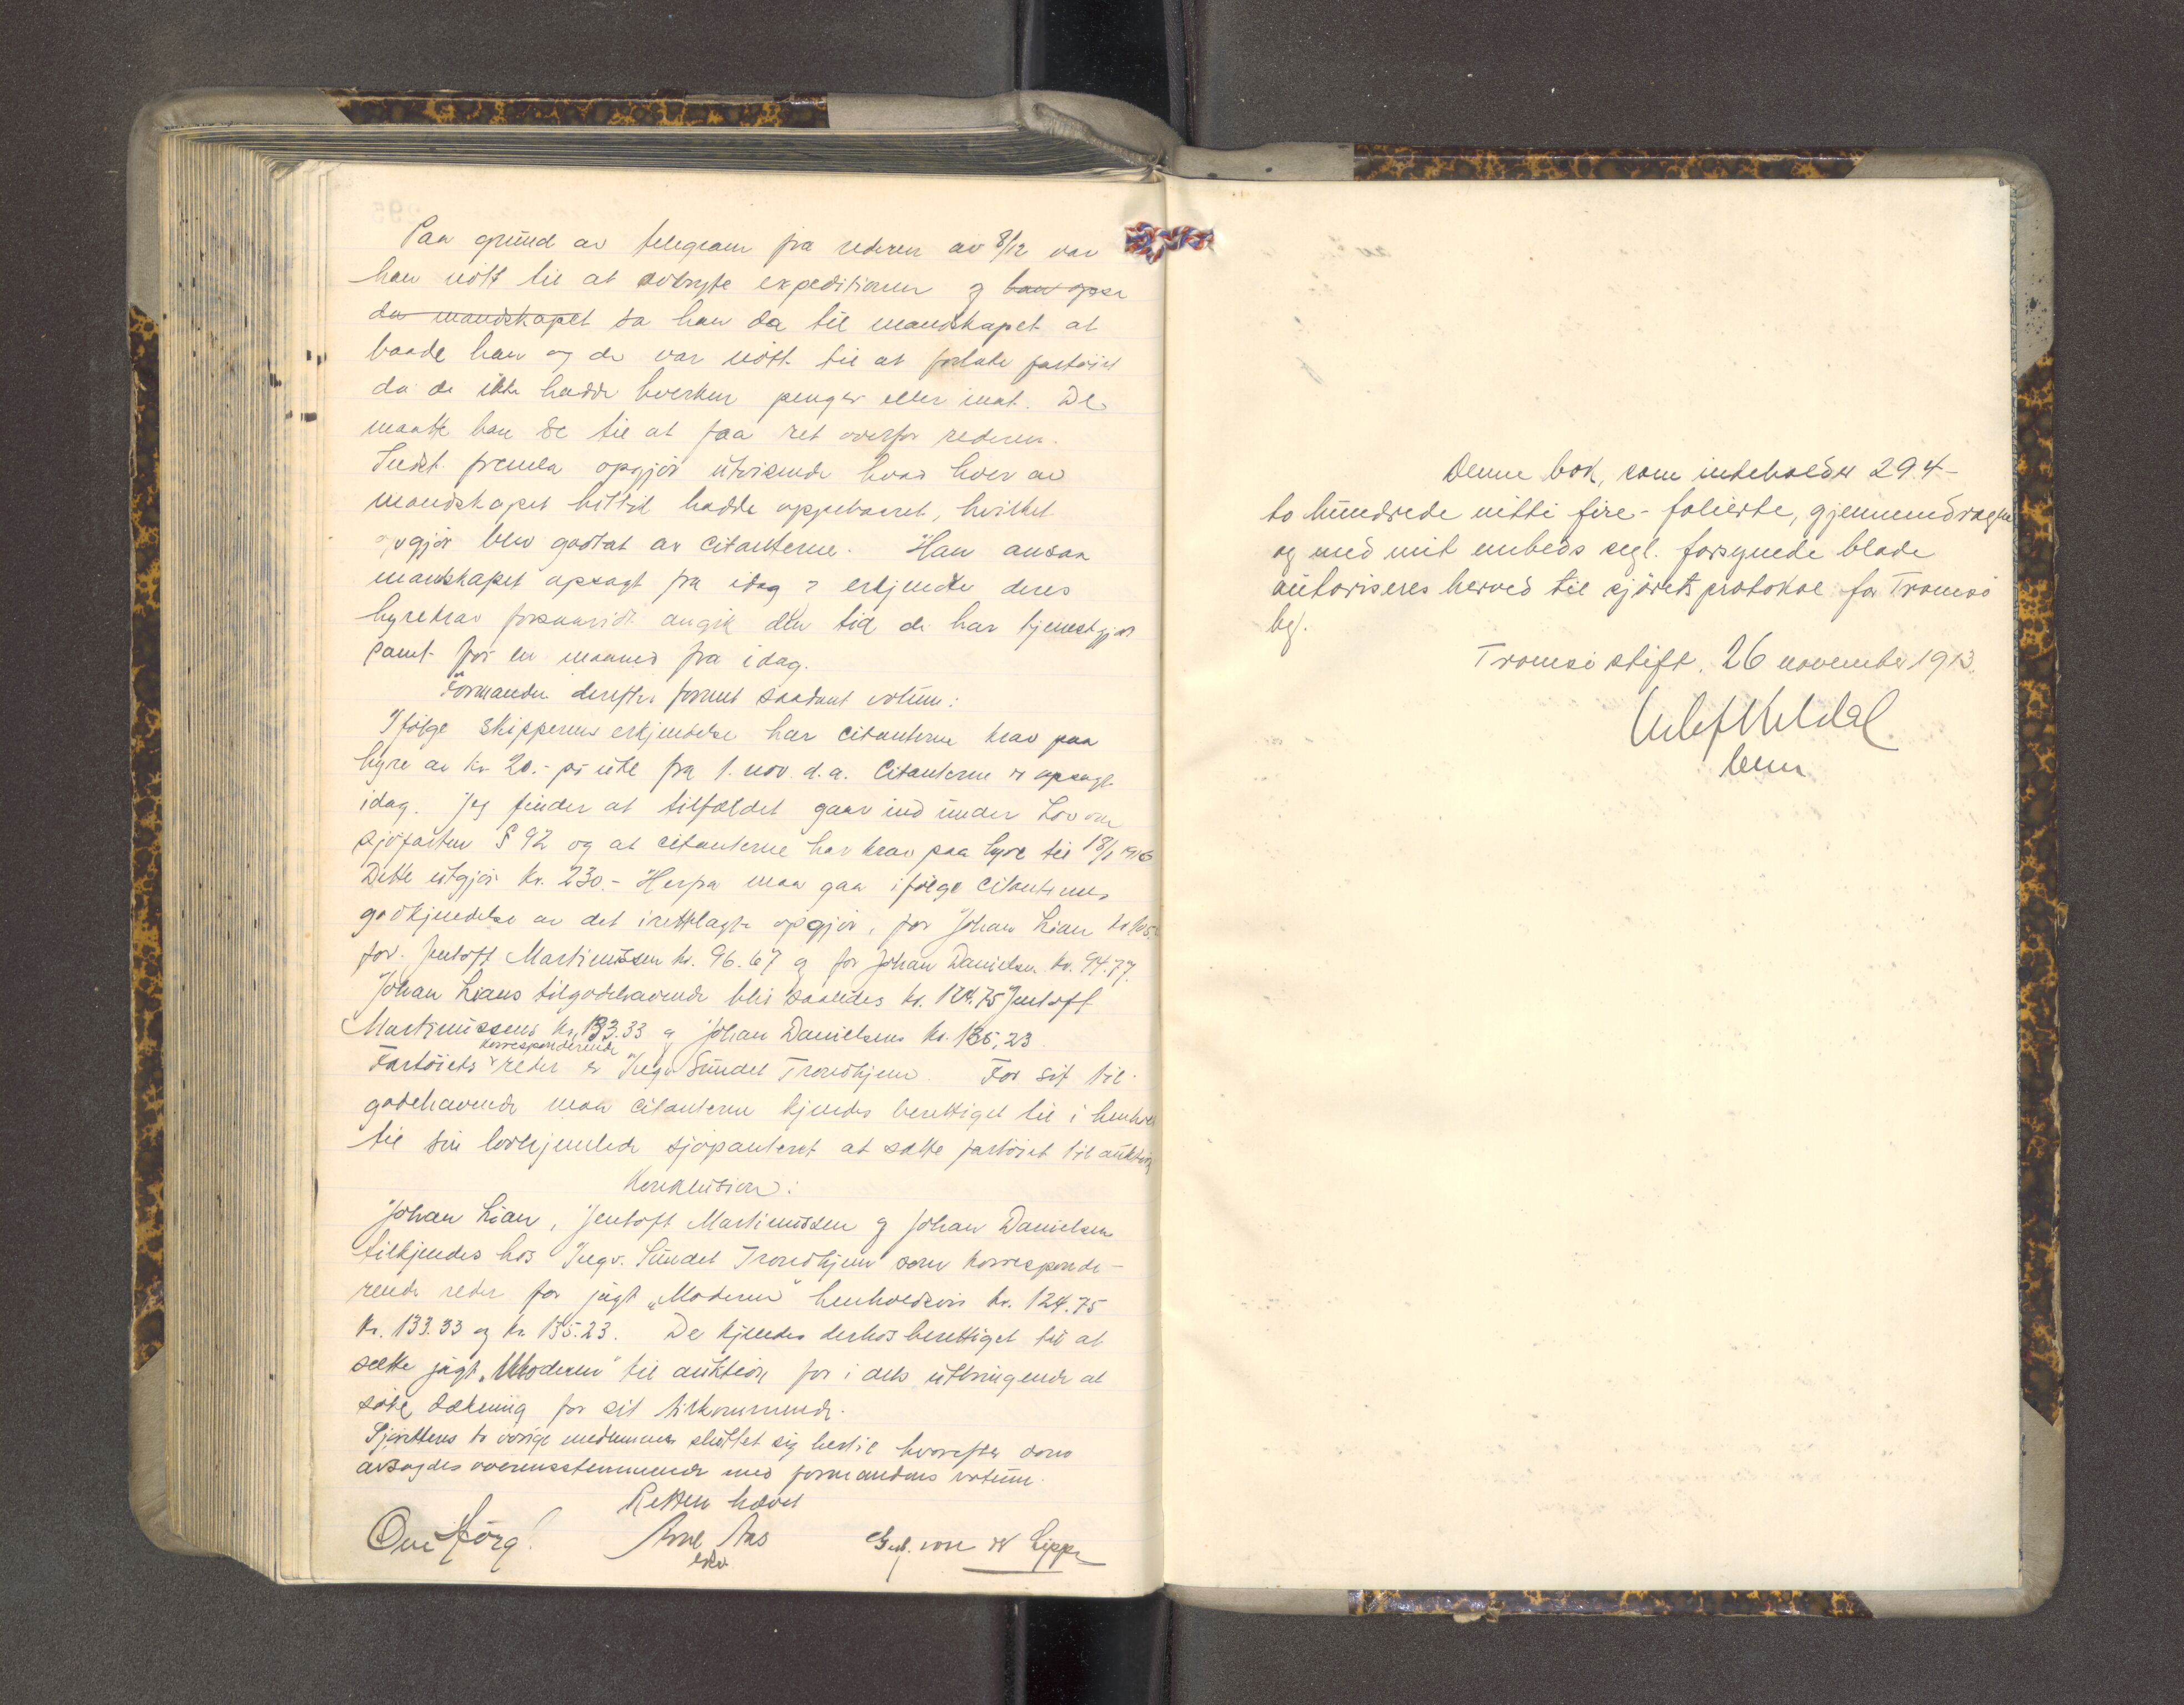 Paa grund av telegram fra rederen av 8/12 var
han nött til at avbryte expeditionen og han opsa
de mandskapet sa han da til mandskapet at
baade han og de var nött til at forlate fartöiet
da de ikke hadde hverken penger eller mat. De
maatte han se til at faa ret overfor rederen.
Indst. fremla opgjör utvisende hvad hver av
mandskapet hittil hadde oppebaaret, hvilket
opgjör blev godtat av citanterne. Han ansaa
mandskapet opsagt fra idag og erkjendte deres
hyrekrav forsaavidt angik den tid de har tjenestgjort
samt for en maaned fra idag.
Formanden derefter saadant votum:
Ifölge skipperens erkjendelse har citanterne krav paa
hyre av kr 20.- pr uke fra 1. nov. d.a. Citanterne er opsagt
idag. Jeg finder at tilfældet gaar ind under Lov om
sjöfarten § 92 og at citanterne har krav paa hyre til 18/1 1916
Dette utgjör kr. 230.- Herfra maa gaa ifölge citanternes
godkjendelse av det iretteslagte opgjör, for Johan Lian kr 105.
for Jentoft Martinussen kr. 96.67 og for Johan Danielsen kr. 94.77.
Johan Lians tilgodehavende blir saaledes kr. 124.75 Jentoft
Martinussens kr. 133.33 og Johan Danielsens kr. 135.23
korresponderende
Fartöiets reder er Ingv. Sundet Trondhjem. For sit til-
godehavende maa citanterne kjendes berettiget til i henhold
til sin lovhjemlede sjöpanteret at sætte fartöiet til auktion
Konklusion:
Johan Lian, Jentoft Martinussen og Johan Danielsen
tilkjendes hos Ingv. Sundet Trondhjem som korrespondе-
rende reder for jagt "Moderen" henholdsvis kr. 124.75
kr. 133.33 og kr. 135.23. De kjendes derhos berettiget til at
sætte jagt "Moderen" til auktion for i dets utbringende at
söke dækning for sit tilkommende.
Sjørettens to övrige medlemmer sluttet sig hertil hvorefter dom
avsagdes overensstemmende med formandens votum.
Retten hævet
Arne Aas Gust. von d Lippe
Denne bok, som indeholder 294-
to hundrede nitti fire - folierte, gjennemdragne
og med mit embeds segl. forsynede blade
autoriseres herved til sjöretsprotokol for Tromsö
by.
Tromsö stift. 26 november 1913.